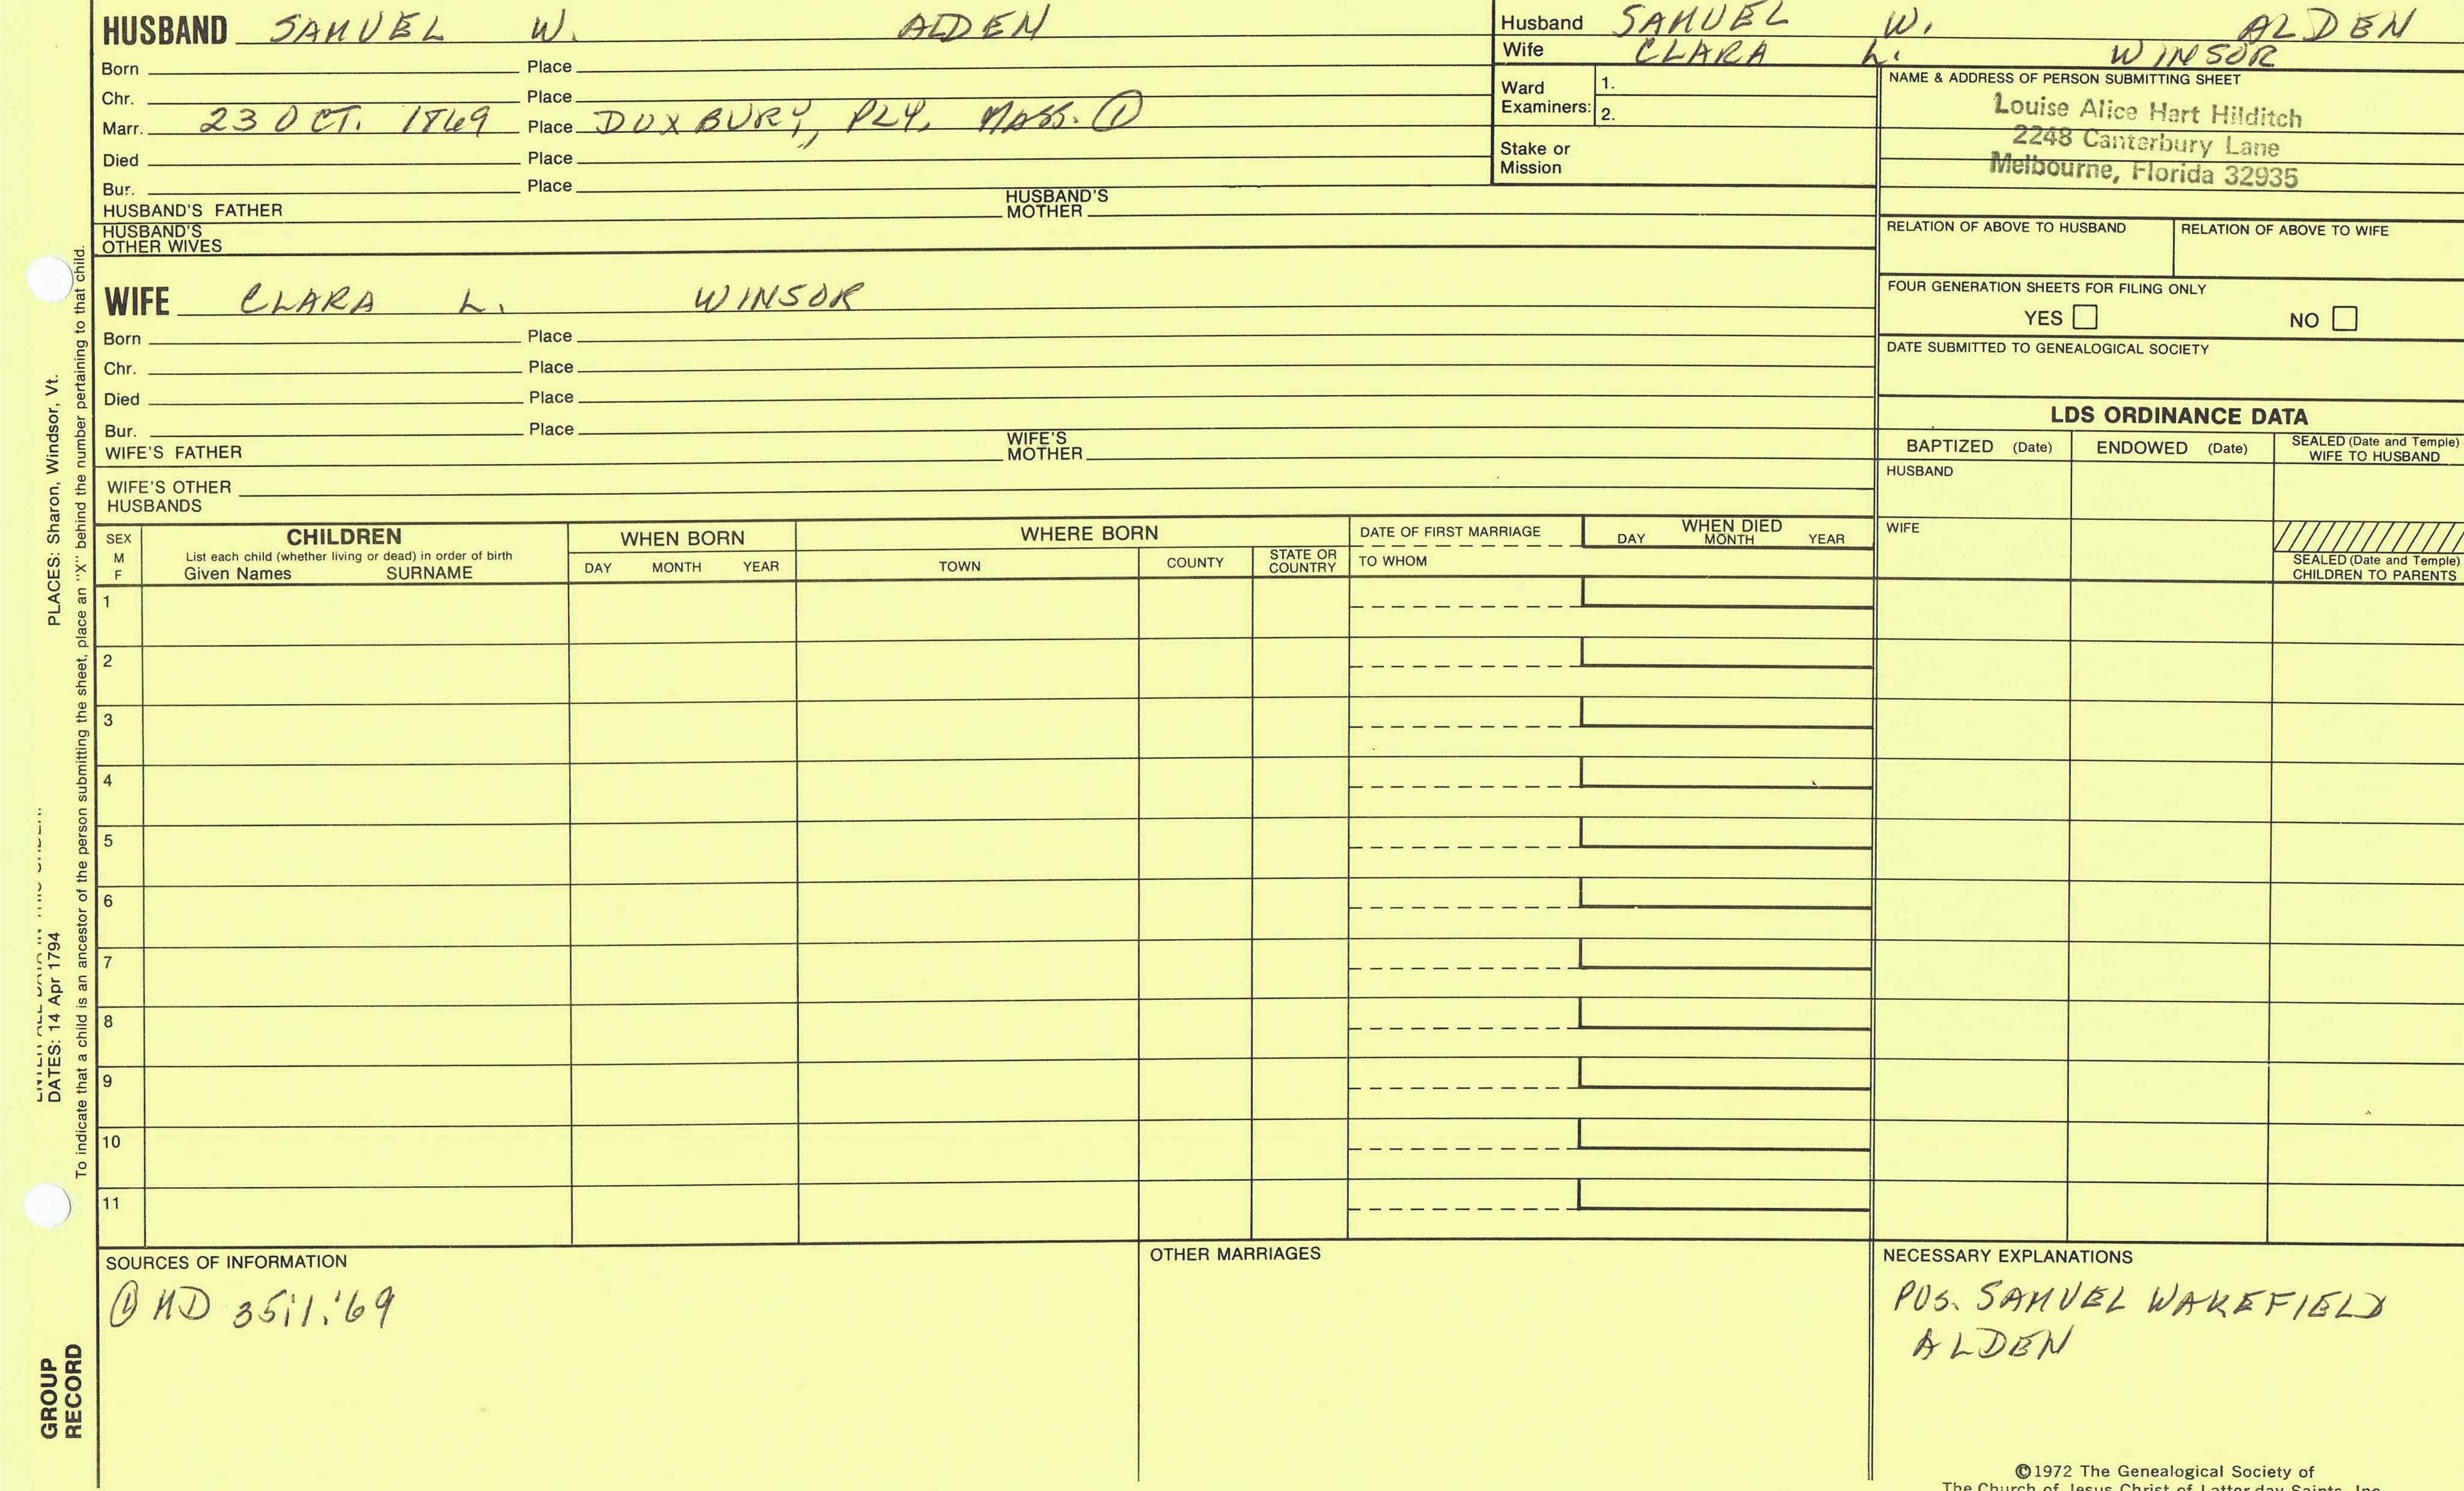 HUSBAND SAMUEL W. ALDEN
Born Place
Chr. Place
Marr. 23 OCT. 1869 Place DUXBURY, PLY, MASS. ①
Died Place
Bur. Place
HUSBAND'S FATHER HUSBAND'S MOTHER
HUSBAND'S OTHER WIVES
WIFE CLARA L. WINSOR
Born Place
Chr. Place
Died Place
Bur. Place
WIFE'S FATHER WIFE'S MOTHER
WIFE'S OTHER HUSBANDS
Husband SAMUEL W. ALDEN
Wife CLARA L. WINSOR
Ward Examiners: 1.
2.
Stake or Mission
NAME & ADDRESS OF PERSON SUBMITTING SHEET
Louise Alice Hart Hilditch
2248 Canterbury Lane
Melbourne, Florida 32935
RELATION OF ABOVE TO HUSBAND RELATION OF ABOVE TO WIFE
FOUR GENERATION SHEETS FOR FILING ONLY
YES NO
DATE SUBMITTED TO GENEALOGICAL SOCIETY
LDS ORDINANCE DATA
BAPTIZED (Date) ENDOWED (Date) SEALED (Date and Temple) WIFE TO HUSBAND
HUSBAND
WIFE
SEALED (Date and Temple) CHILDREN TO PARENTS
SEX M F
CHILDREN
List each child (whether living or dead) in order of birth
Given Names SURNAME
WHEN BORN
DAY MONTH YEAR
WHERE BORN
TOWN COUNTY STATE OR COUNTRY
DATE OF FIRST MARRIAGE
TO WHOM
WHEN DIED
DAY MONTH YEAR
1
2
3
4
5
6
7
8
9
10
11
SOURCES OF INFORMATION
① MD 35:1:'69
OTHER MARRIAGES
NECESSARY EXPLANATIONS
POS. SAMUEL WAKEFIELD
ALDEN
©1972 The Genealogical Society of
The Church of Jesus Christ of Latter-day Saints, Inc.
PLACES: Sharon, Windsor, Vt.
DATES: 14 Apr 1794
To indicate that a child is an ancestor of the person submitting the sheet, place an "X" behind the number pertaining to that child.
GROUP
RECORD